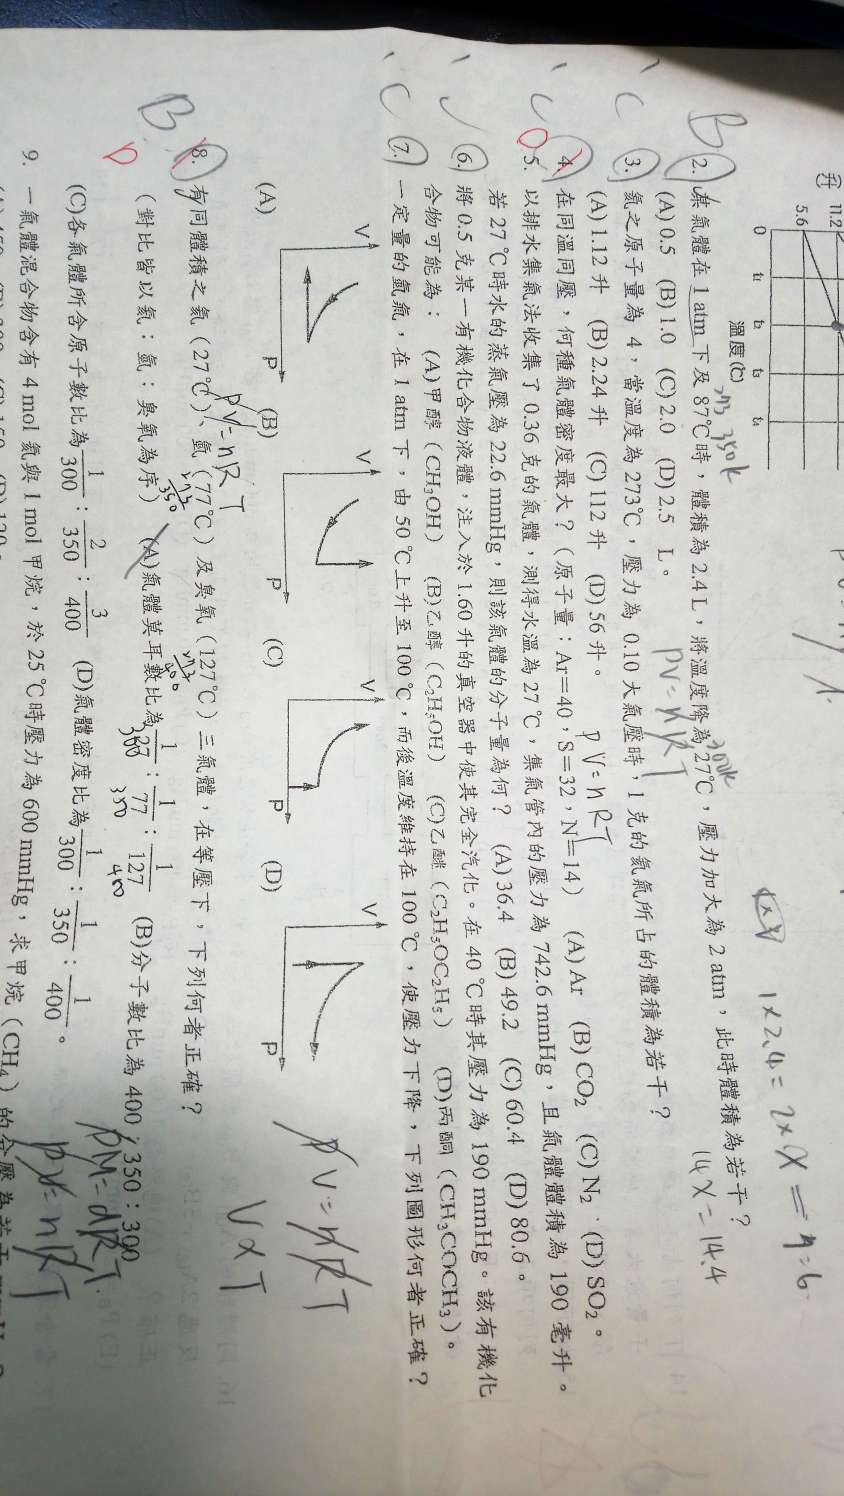 升 11.2
5.6
0 t₁ t₂ t₃ t₄
溫度(℃)
B 2. 某氣體在 1 atm 下及 87℃時，體積為 2.4 L，將溫度降為 27℃，壓力加大為 2 atm，此時體積為若干？
(A) 0.5 (B) 1.0 (C) 2.0 (D) 2.5 L。
350k
300k
1×2.4=2×X
14X=14.4
C 3. 氦之原子量為 4，當溫度為 273℃，壓力為 0.10 大氣壓時，1 克的氦氣所占的體積為若干？
(A) 1.12 升 (B) 2.24 升 (C) 112 升 (D) 56 升。
PV=nRT
D 4. 在同溫同壓，何種氣體密度最大？（原子量：Ar=40，S=32，N=14） (A) Ar (B) CO₂ (C) N₂ (D) SO₂。
PV=nRT
C 5. 以排水集氣法收集了 0.36 克的氣體，測得水溫為 27℃，集氣管內的壓力為 742.6 mmHg，且氣體體積為 190 毫升。
若 27℃時水的蒸氣壓為 22.6 mmHg，則該氣體的分子量為何？ (A) 36.4 (B) 49.2 (C) 60.4 (D) 80.6。
6. 將 0.5 克某一有機化合物液體，注入於 1.60 升的真空器中使其完全汽化。在 40℃時其壓力為 190 mmHg。該有機化
合物可能為： (A)甲醇（CH₃OH） (B)乙醇（C₂H₅OH） (C)乙醚（C₂H₅OC₂H₅） (D)丙酮（CH₃COCH₃）。
C 7. 一定量的氫氣，在 1 atm 下，由 50℃上升至 100℃，而後溫度維持在 100℃，使壓力下降，下列圖形何者正確？
(A) V P (B) V P (C) V P (D) V P
PV=nRT
V∝T
PV=nRT
B D 8. 有同體積之氦（27℃）、氫（77℃）及臭氧（127℃）三氣體，在等壓下，下列何者正確？
（對比皆以氦：氫：臭氧為序） (A)氣體莫耳數比為 1/27：1/77：1/127 (B)分子數比為 400：350：300
300 350 400
(C)各氣體所含原子數比為 1/300：2/350：3/400 (D)氣體密度比為 1/300：1/350：1/400。
PM=dRT
PV=nRT
9. 一氣體混合物含有 4 mol 氦與 1 mol 甲烷，於 25℃時壓力為 600 mmHg，求甲烷（CH₄）的分壓為若干 mmHg？